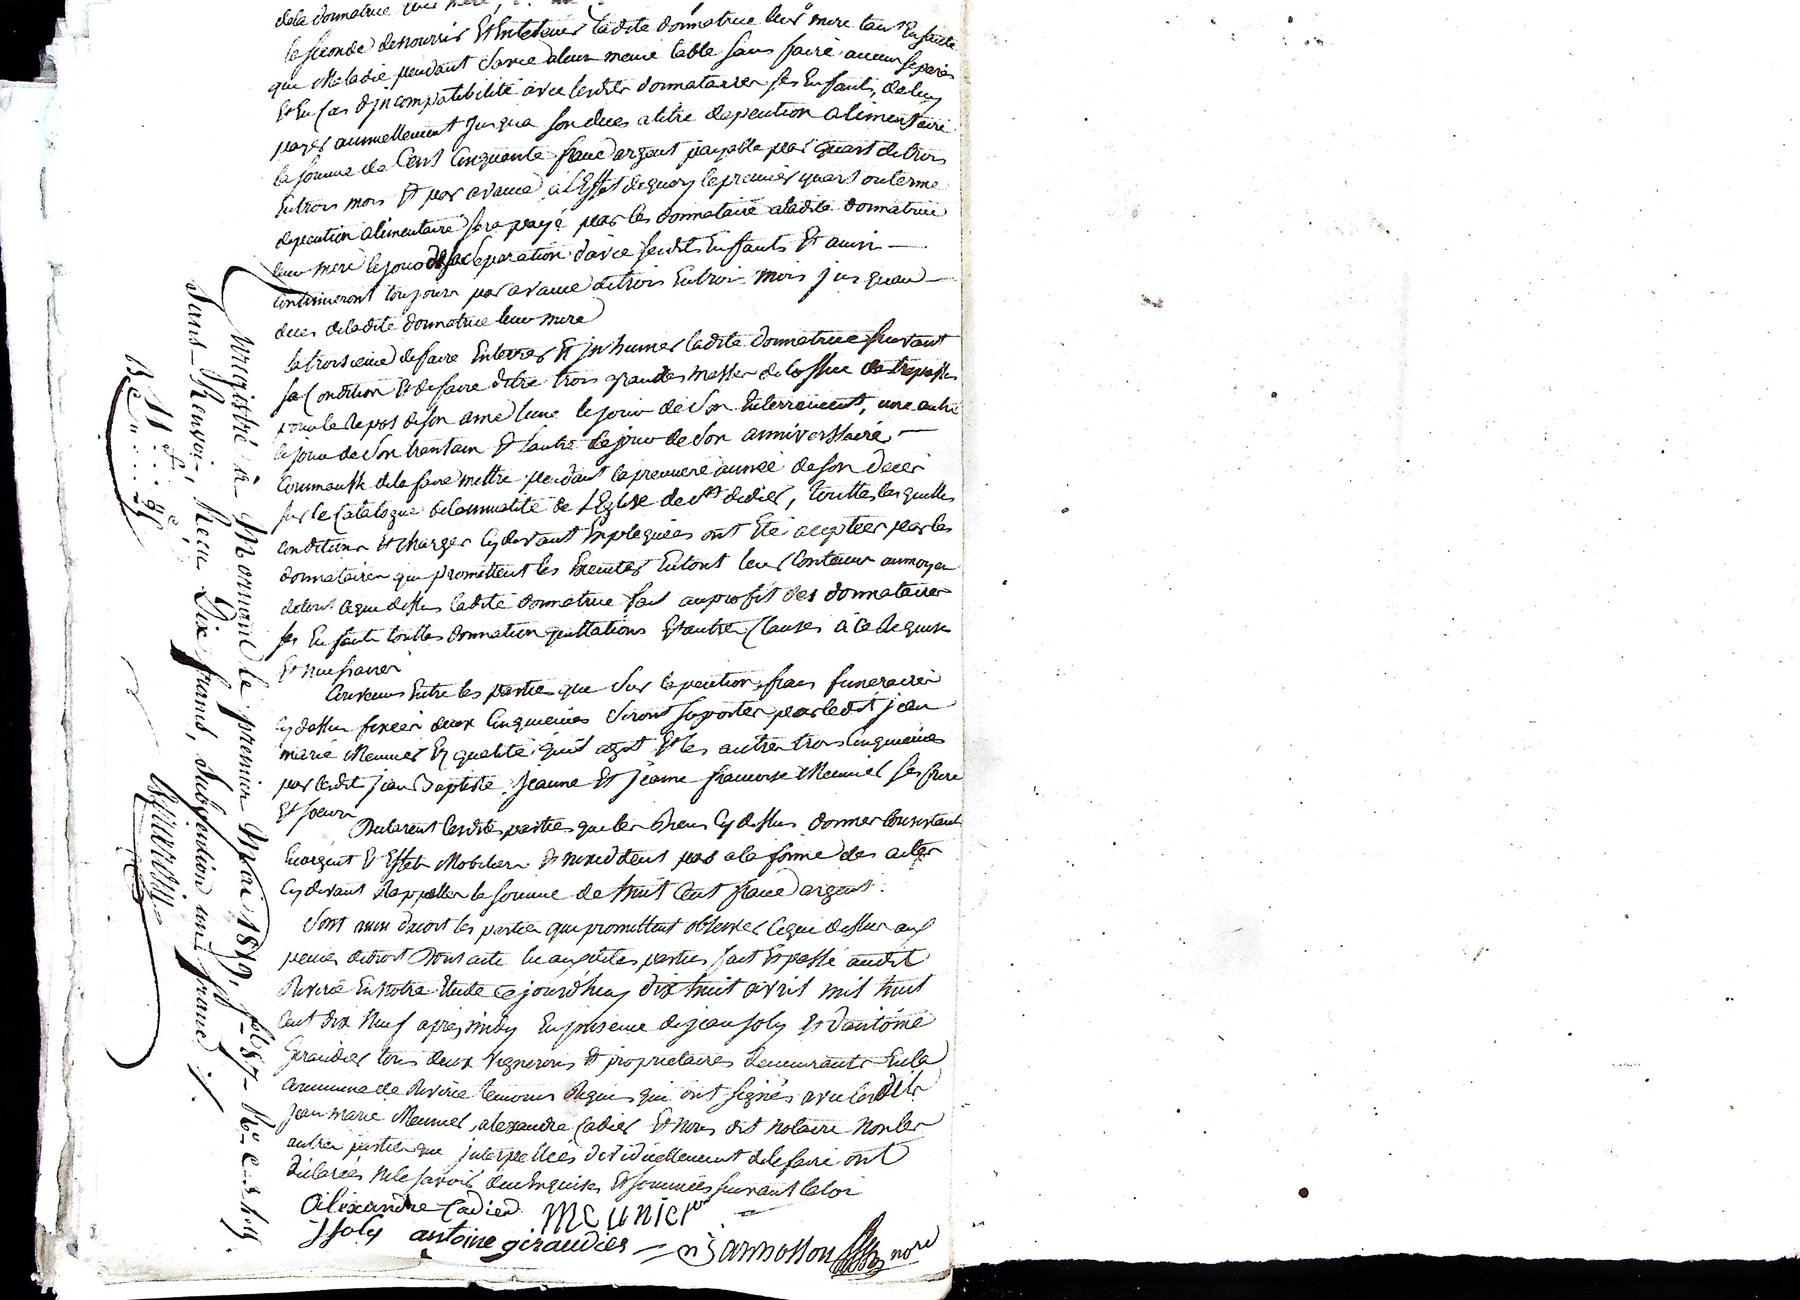 dela donnatrice leur mere,
la seconde denourrir Et Entetenir ladite donnatrice leur mere tant En santé
que Maladie pendant sa vie a leur meme table sans faire aucun
Et En Cas d'jncompatibilité avec lesdits donnataires ses Enfants, de luy
payer annuellement jusqua son deces a titre depention alimentaire
la somme de Cent Cinquante franc argent payable par quart de trois
En trois mois Et par avance, a l'Effet dequoy le premier quart ou terme
depention alimentaire sera payé par les donnataire aladite donnatrice
leur mere le jour de sa separation d'avec sesdits Enfants Et ainsi
Continueront toujours par avance de trois En trois mois jusquau
deces deladite donnatrice leur mere
la troisieme de faire Enterrer Et jnhumer ladite donnatrice suivant
sa Condition Et de faire dire trois grandes Messes de loffice des trepassés
pour le Repos de son ame lune le jour de Son Enterrement, une autre
le jour de Son trantain Et l'autre le jour de Son anniversaire
Comme aussi de la faire mettre pendant la premiere année de son deces
sur le Catalogue de lannualité de l'Eglise de st didier, touttes lesquelles
Conditions Et charges Cy devant Expliquées ont Eté acceptées par les
donnataires qui promettent les Executer En tout leur Contenu aumoyen
detout ceque dessus ladite donnatrice fait au profit des donnataires
ses Enfants touttes donnation quittations Et autres Clauses à Ce Requises
Et necessaires
Convenus Entre les parties que Sur la pention, frais funeraires
Cy dessus fixées deux Cinquiemes Seront suportés par ledit jean
marie Meunier En qualité quil agit Et les autres trois Cinquiemes
par lesdits jean Baptiste, Jeanne Et jeanne françoise Meunier ses frere
Et soeurs
Declarent lesdites parties que les Biens Cy dessus donnés Consistant
En argent Et Effets Mobiliers N'excedent pas a la forme des actes
Cy devant Rappellés la somme de huit Cent franc argent.
Sont ainsi d'acord les parties qui promettent observer Ceque dessus aux
peines de droit Dont acte lu auxdites parties fait Et passé audit
Riverie En notre Etude Ce jourd'huy dix huit avril mil huit
Cent dix Neuf après midy En presence de jean joly Et d'antoine
Giraudier tous deux vignerons Et proprietaires demeurants En la
Commune de Riverie temoins Requis qui ont signés avec lesdits
jean marie Meunier, alexandre Cadier Et Nous dit Notaire Non les
autres parties que jnterpellées dividuellement de le faire ont
déclarées Ne le savoir de ce Enquises Et sommées suivant la loi
alixandre Cadier meunier
J Joly antoine giraudier Jannosson nore
Enregistré à Mornant le premier Mai 1819, fo 87 Ro C. 3 & 4.
Sans Renvoi, Reçu Dix francs, Subvention un franc ./.
11 f. c.